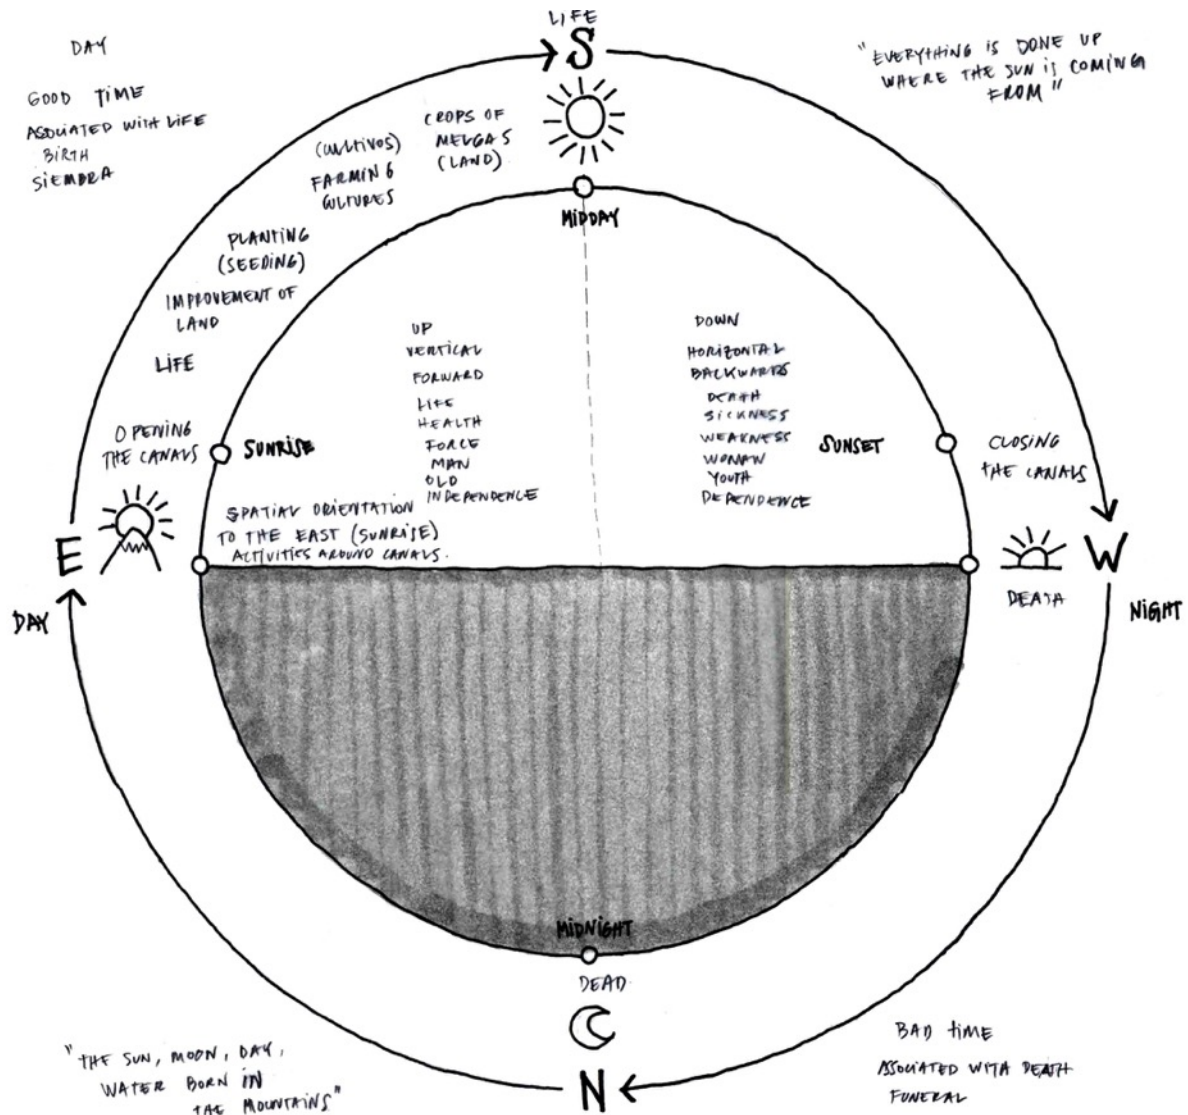 LIFE
S
DAY
GOOD TIME
ASSOCIATED WITH LIFE
BIRTH
SIEMBRA
"EVERYTHING IS DONE UP
WHERE THE SUN IS COMING
FROM"
CROPS OF
MELGAS
(LAND)
(CULTIVOS)
FARMING
CULTURES
PLANTING
(SEEDING)
IMPROVEMENT OF
LAND
LIFE
OPENING
THE CANALS
MIDDAY
SUNRISE
UP
VERTICAL
FORWARD
LIFE
HEALTH
FORCE
MAN
OLD
INDEPENDENCE
DOWN
HORIZONTAL
BACKWARDS
DEATH
SICKNESS
WEAKNESS
WOMAN
YOUTH
DEPENDENCE
SUNSET
CLOSING
THE CANALS
SPATIAL ORIENTATION
TO THE EAST (SUNRISE)
ACTIVITIES AROUND CANALS.
E
DAY
W
DEATH
NIGHT
MIDNIGHT
DEAD
N
"THE SUN, MOON, DAY,
WATER BORN IN
THE MOUNTAINS"
BAD TIME
ASSOCIATED WITH DEATH
FUNERAL